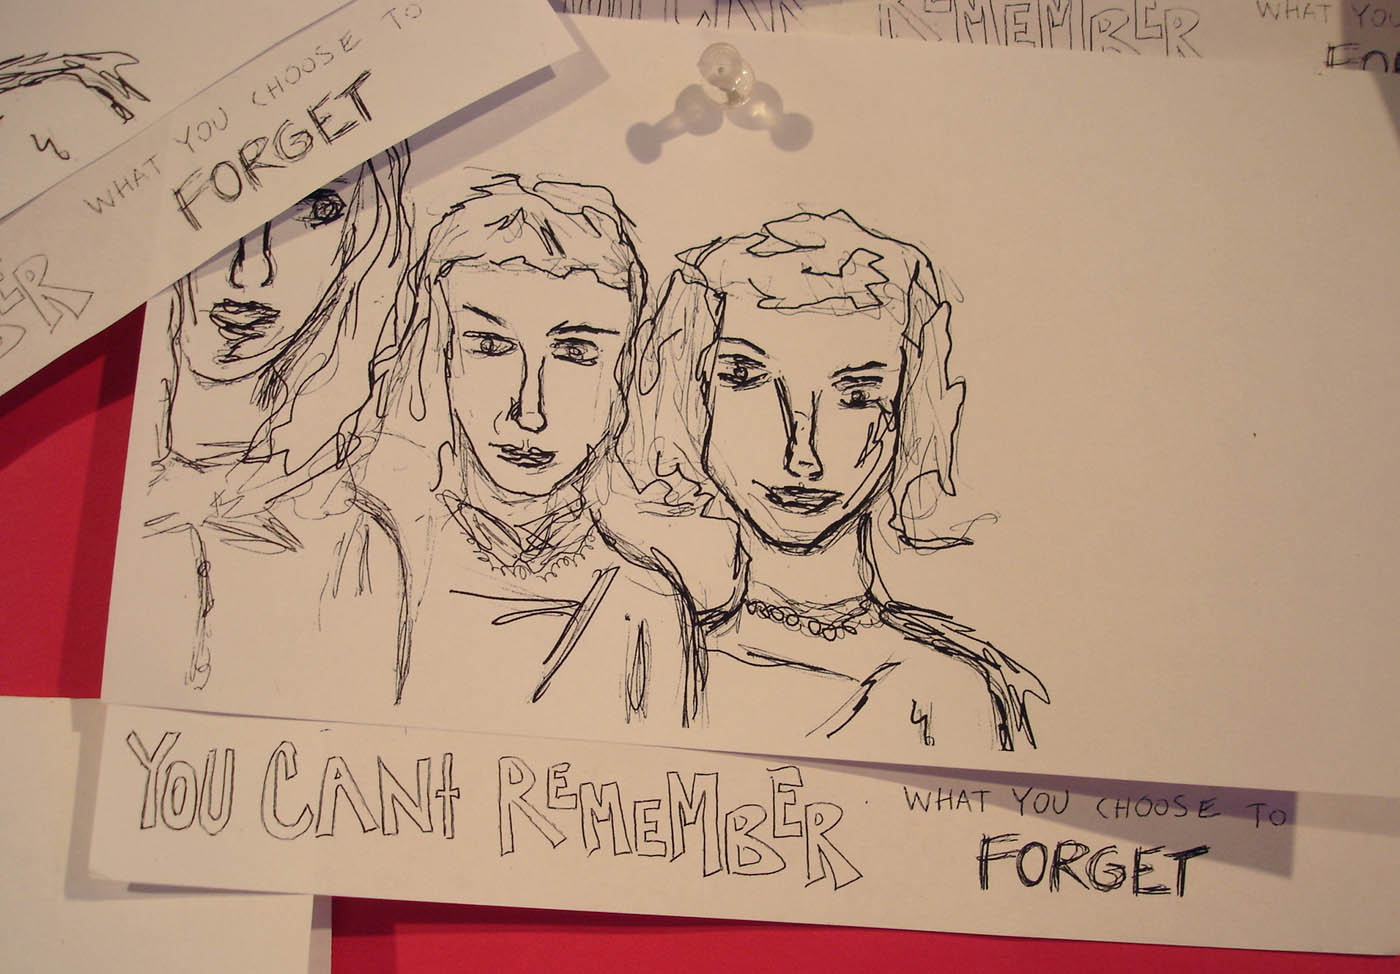 REMEMBER
WHAT YOU
WHAT YOU CHOOSE TO
FORGET
ER
YOU CANT REMEMBER
WHAT YOU CHOOSE TO
FORGET